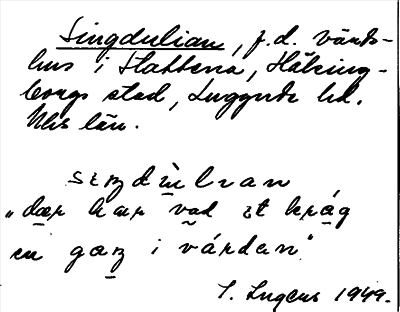 Singdulian, f.d. värds-
hus i Slabbena, Hälsing-
borgs stad, Luggude hd.
Mhs län.
sɪŋdùlɪan
„dær hær vad ɪt kråg
en gaŋ i várden".
S. Ingers 1949.